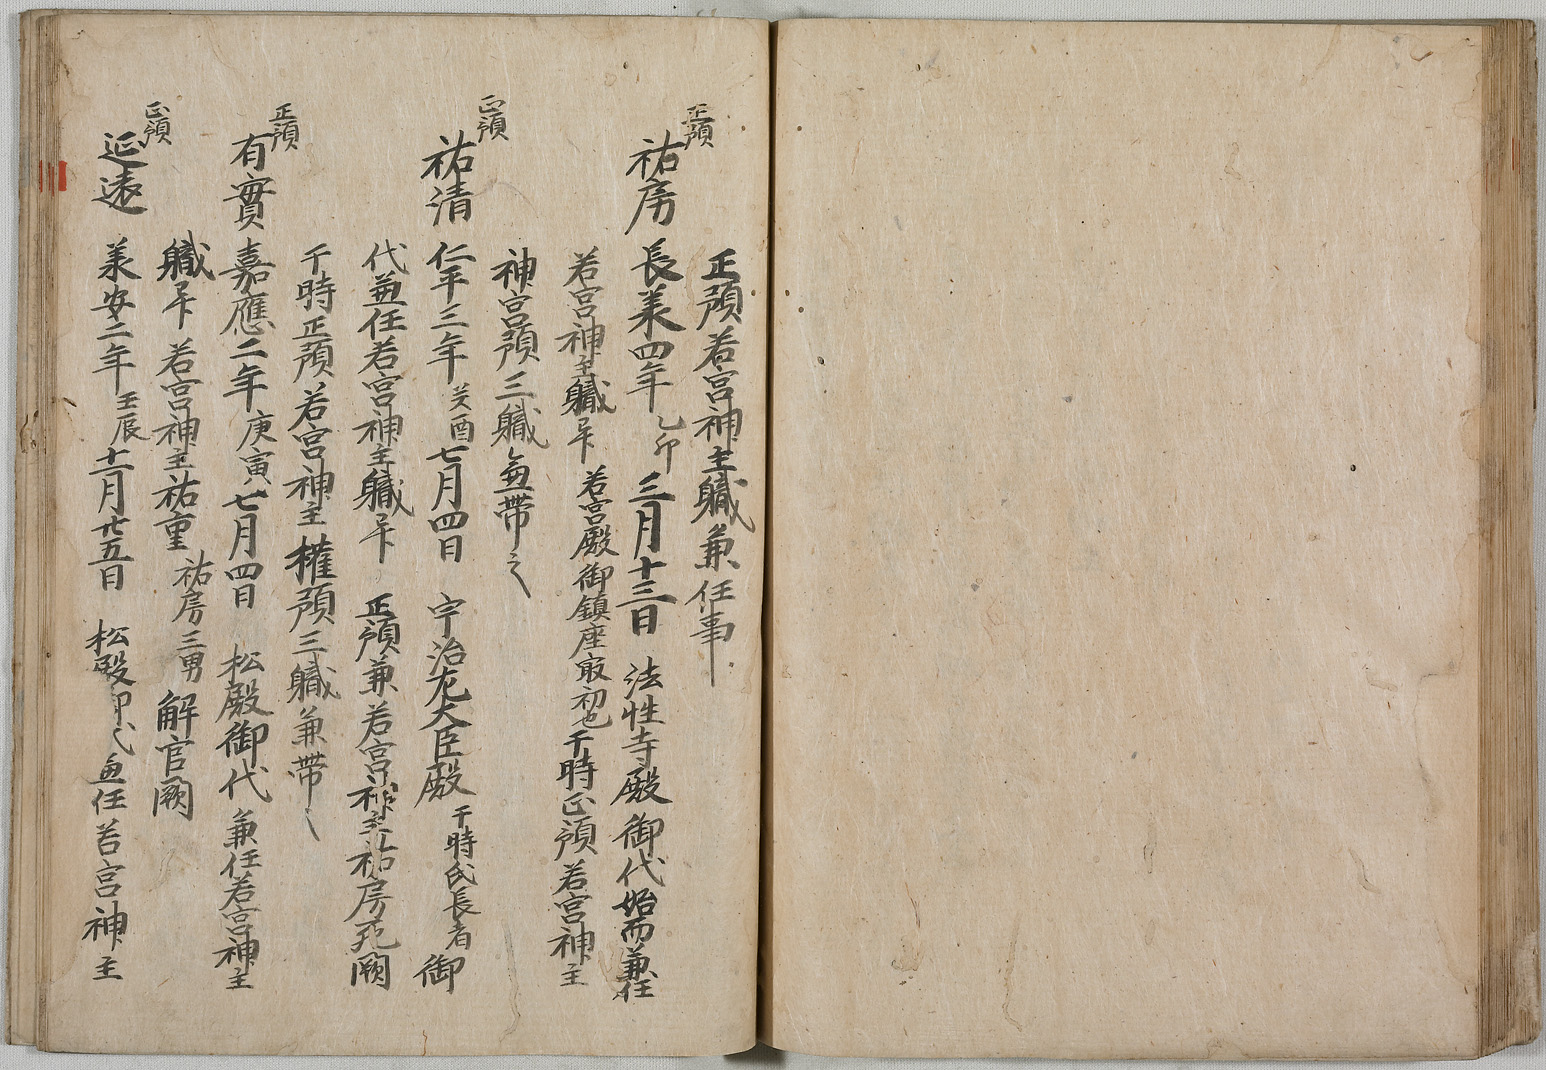 正預若宮神主軄兼任事
正預
祐房 長美四年乙卯三月十三日 法性寺殿御代始而兼任
若宮神主軄畢 若宮殿御鎮座最初也于時正預若宮神主
神宮預三軄兼帯之
正預
祐清 仁平三年癸酉七月四日 宇治左大臣殿于時氏長者御
代兼任若宮神主軄畢 正預兼若宮神主祐房死闕
于時正預若宮神主権預三軄兼帯之
正預
有實 嘉應二年庚寅七月四日 松殿御代兼任若宮神主
軄畢 若宮神主祐重祐房三男解官闕
正預
延遠 美安二年壬辰十二月廿五日 松殿御代兼任若宮神主